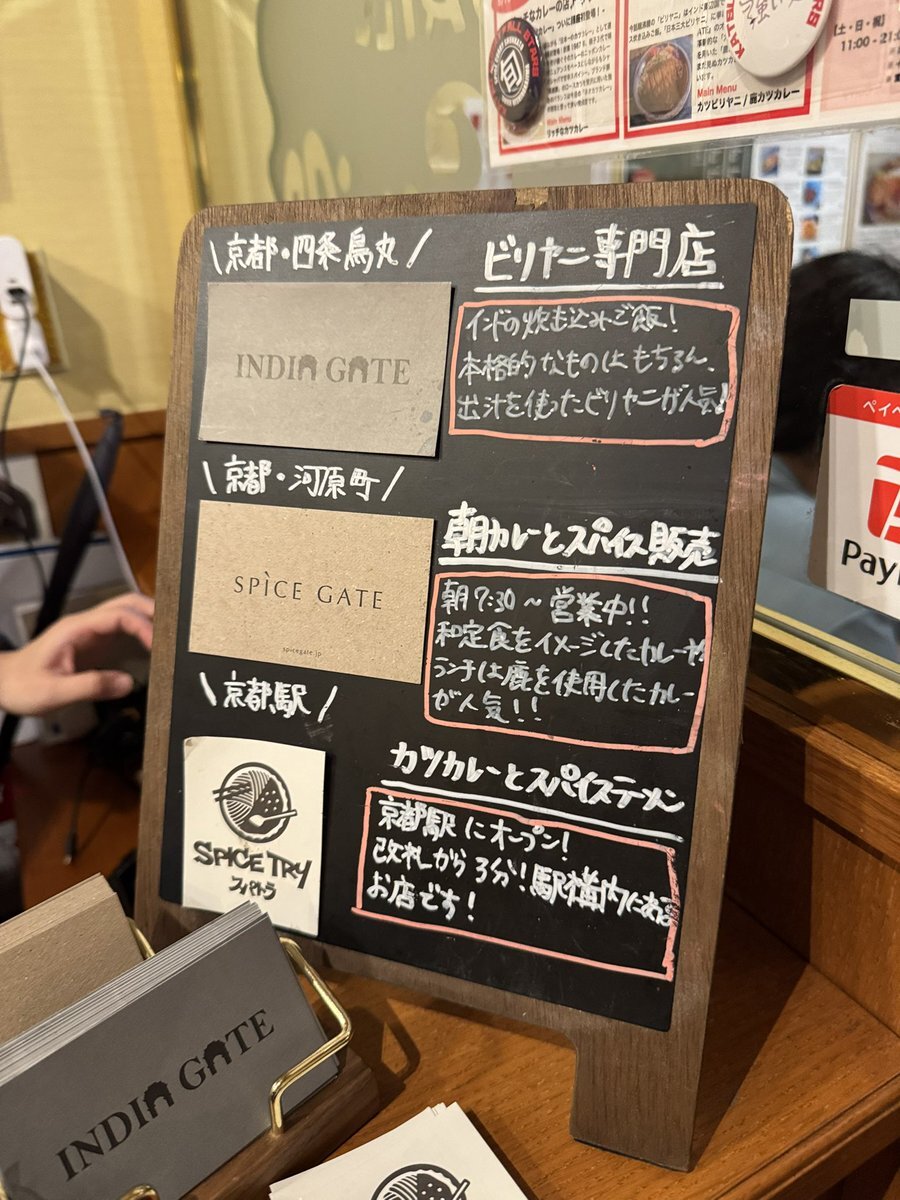 \京都・四条烏丸/
ビリヤニ専門店
INDIA GATE
インドの炊き込みご飯!
本格的なものはもちろん、
出汁を使ったビリヤニが人気!
\京都・河原町/
朝カレーとスパイス販売
SPICE GATE
spicegate.jp
朝7:30~営業中!!
和定食をイメージしたカレーや
ランチは鹿を使用したカレー
が人気!!
\京都駅/
カツカレーとスパイスラーメン
SPICE TRY
スパトラ
京都駅にオープン!
改札から3分!駅構内にある
お店です!
INDIA GATE
ALL STARS
旬
Main Menu
リッチなカツカレー
Main Menu
カツビリヤニ / 鹿カツカレー
[土・日・祝]
ペイペ